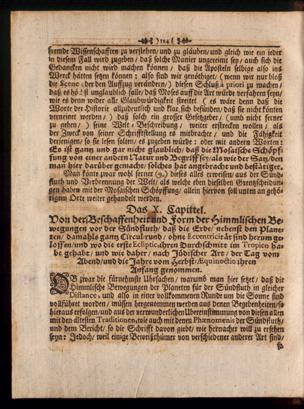 )124(
fremde Wissenschafften zu verstehen/ und zu gläuben/ und gleich wie ein jeder
in diesem Fall wird zugeben/ daß solche Manier ungereimt sey/ auch sich die
Gedancken nicht wird machen können/ daß die Aposteln selbige also ins
Werck hätten setzen können: also sind wir genöthiget/ (wenn wir nur bloß
die Scene der ersten Auffzug verändern) diesen Schluß à priori zu machen/
daß es höchst unglaublich falle/ daß Moses auff die Art würde verfahren seyn/
wie es denn wider alle Glaubwürdigkeit streitet (es wäre denn daß die
Worte der Historie allzudeutlich und klar sich befunden/ daß sie nicht könten
verneinet werden) daß solch ein grosser Gesetzgeber/ (und nicht ferner
zu gehen/) seine Wort und Beschreibung weiter erstrecken wollen/ als
der Zweck von seiner Schrifftstellung es mitbrachte/ und die Fähigkeit
derjenigen/ so sie lesen solten/ es zugeben wurde: oder mit andern Worten:
Es ist gantz und gar nicht glaublich/ daß die Mosaische Schöpf-
fung von einer andern Natur und Begriff sey/ als wie der Satz/ den
man hier darüber gemacht/ solches hat angedeutet und bestätiget.
Man könte zwar wohl ferner (9.) dieses alles erweisen/ aus der Sünd-
fluth und Verbrennung der Welt/ als welche eben dieselben Grentzscheidun-
gen haben mit der Mosaischen Schöpffung: allein hiervon soll unten an gehö-
rigem Orte weiter gehandelt werden.
Das X. Capittel.
Von der Beschaffenheit und Form der Himmlischen Be-
wegungen vor der Sündfluth: daß die Erde/ nebenst den Plane-
ten/ damahls gantz Circulrund/ ohne Eccentricität sind herum ge-
loffen/ und wo die erste Ecliptic ihren Durchschnitt im Tropico ha-
be gehabt/ und wie daher/ nach Jüdischer Art/ der Tag vom
Abend/ und die Jahre vom Herbst-Equinoctio ihren
Anfang genommen.
OB zwar die fürnehmste Ursachen/ warum man hier setzet/ daß die
Himmlische Bewegungen der Planeten für der Sündfluth in gleicher
Distance, und also in einer vollkommenen Runde um die Sonne sind
vollführet worden/ müssen hergenommen werden aus deren Begebenheiten/ so
hierauf erfolgen/ und aus der verwunderlichen Ubereinstimmung von diesen allen
mit den ältesten Traditionen, wie auch mit denen Phænomenis der Sündfluth/
und dem Bericht/ so die Schrifft davon giebt/ wie hernacher will zu ersehen
seyn: Jedoch/ weil einige Beweißthümer von verschiedener anderer Art sind/